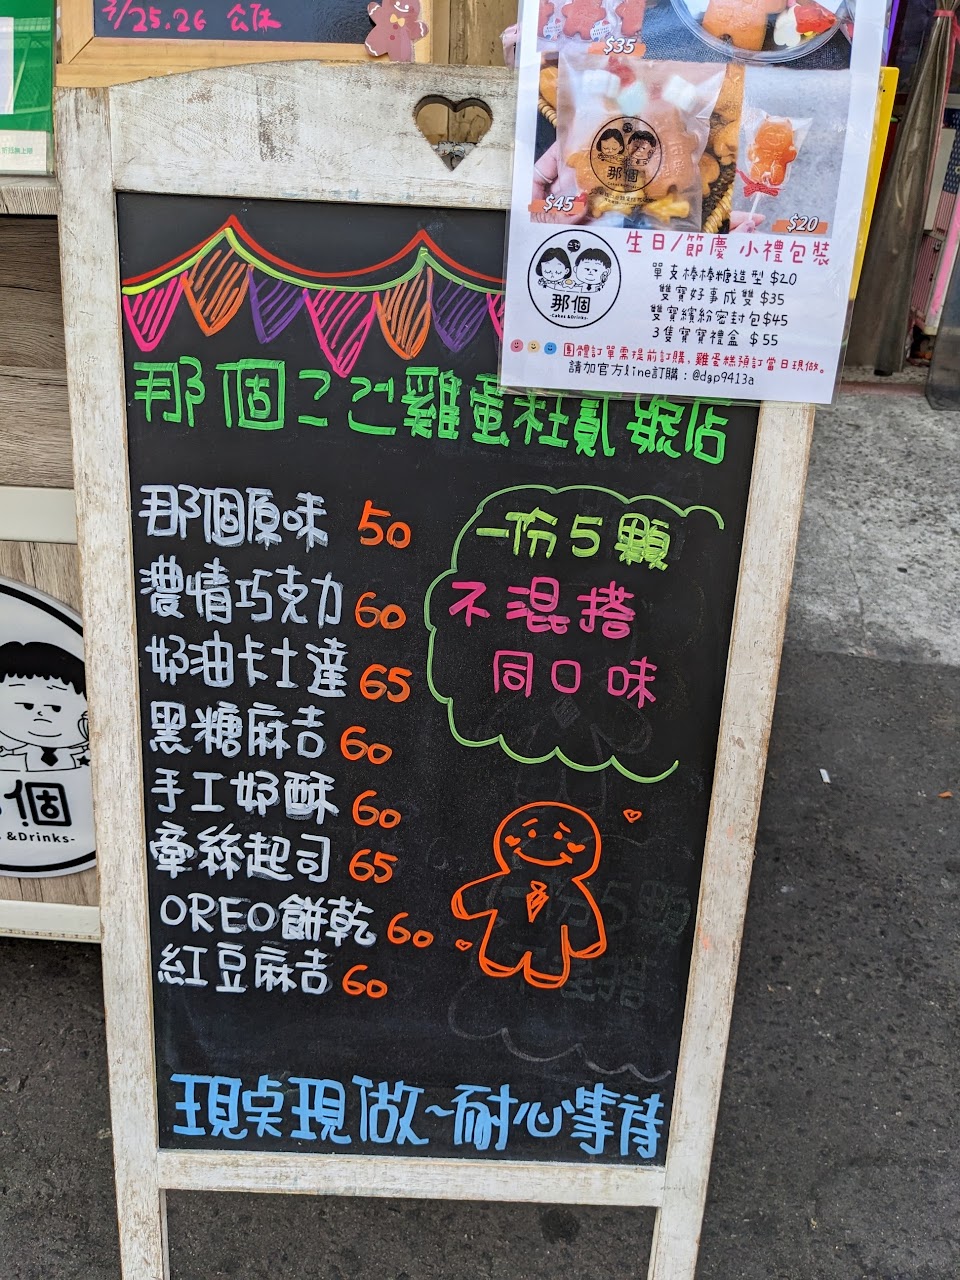 3/25.26 公休
$35
那個
$45
$20
生日/節慶 小禮包裝
單支棒棒糖造型 $20
雙寶好事成雙 $35
雙寶繽紛密封包$45
3隻寶寶禮盒 $55
那個
-Cakes &Drinks-
團體訂單需提前訂購,雞蛋糕預訂當日現做。
請加官方line訂購:@dgp9413a
那個ここ雞蛋社貳號店
那個原味 50
濃情巧克力 60
奶油卡士達 65
黑糖麻吉 60
手工奶酥 60
牽絲起司 65
OREO餅乾 60
紅豆麻吉 60
一份5顆
不混搭
同口味
現桌現做~耐心等待
個
&Drinks-